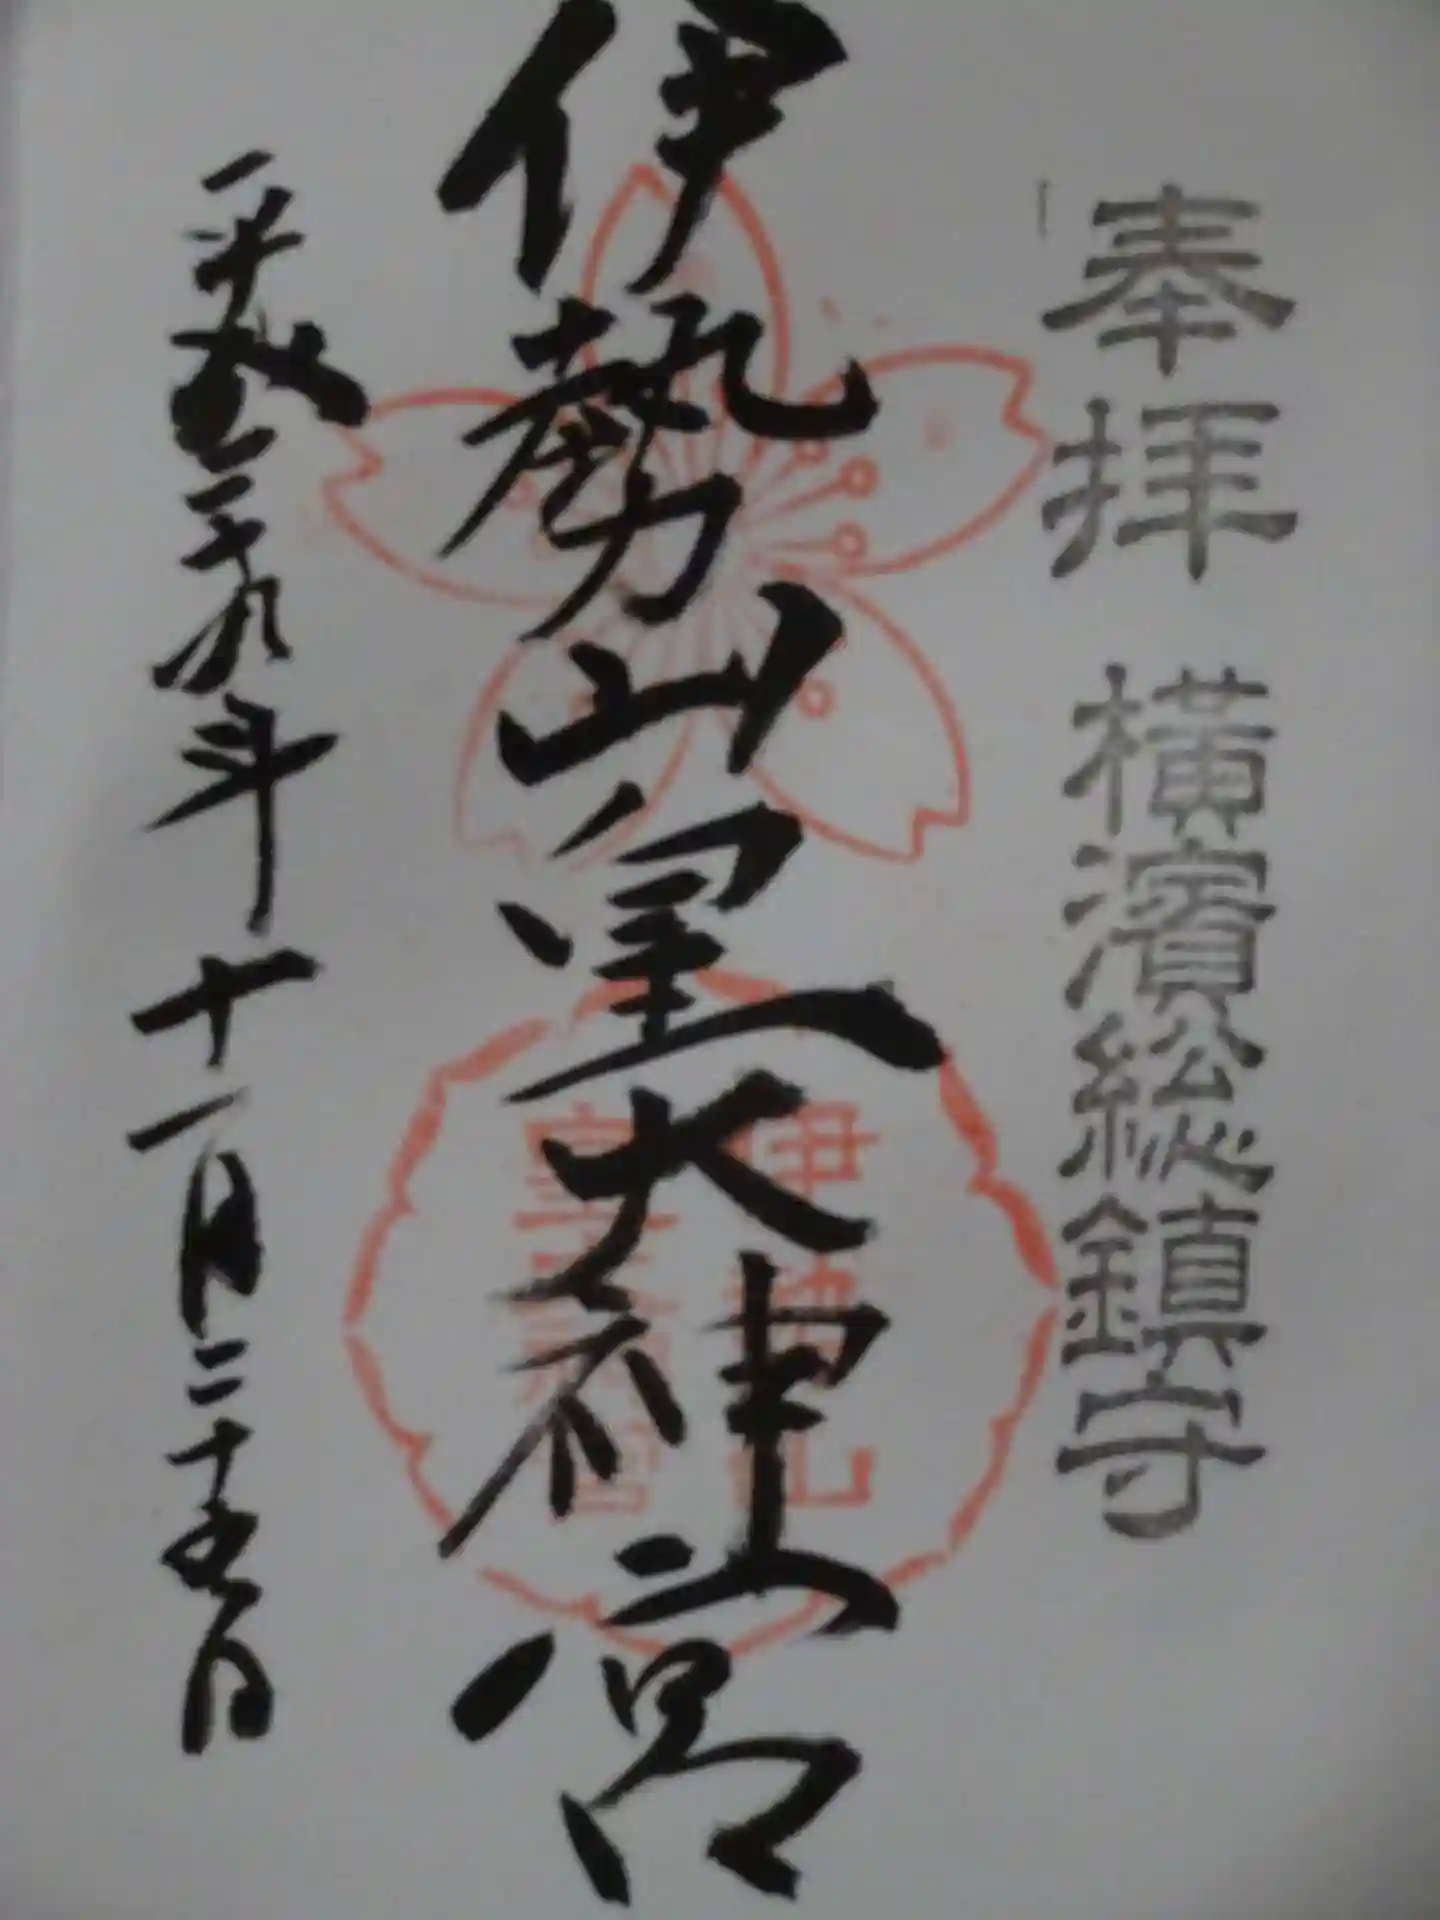 奉拝 横濱総鎮守
伊勢山皇大神宮
伊勢山
皇大神宮
平成二十九年十一月二十五日